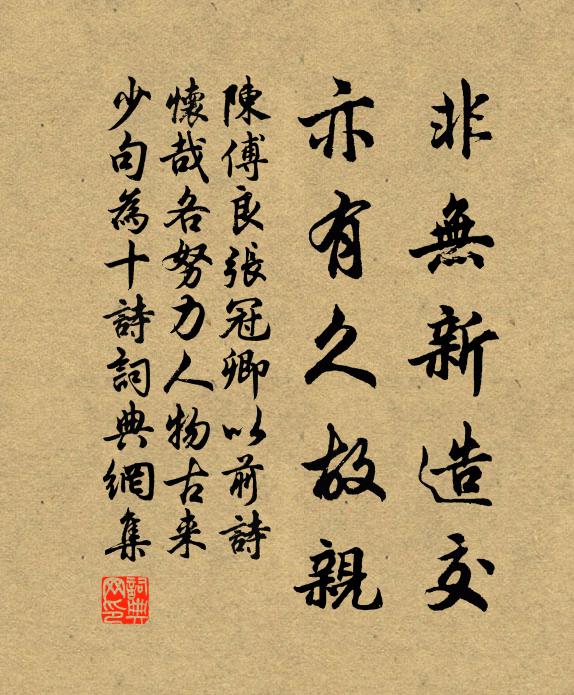 非無新造交
亦有久故親
陳傅良張冠卿以前詩
懷哉各努力人物古来
少句為十詩詞典網集
詞典网印